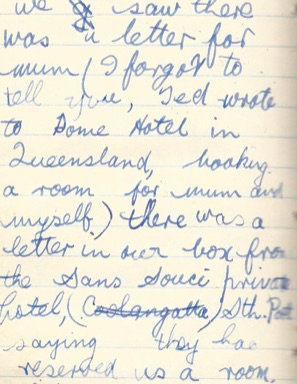 we saw there
was a letter for
mum (I forgot to
tell you, Ted wrote
to Dome Hotel in
Queensland, booking
a room for mum and
myself.) there was a
letter in our box from
the Sans Souci private
hotel, (Coolangatta) Sth. Port
saying they had
reserved us a room,